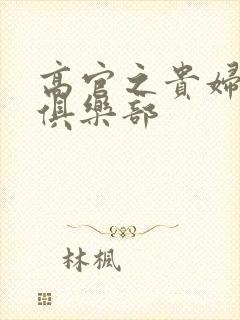 高官之貴婦
俱樂部
林楓